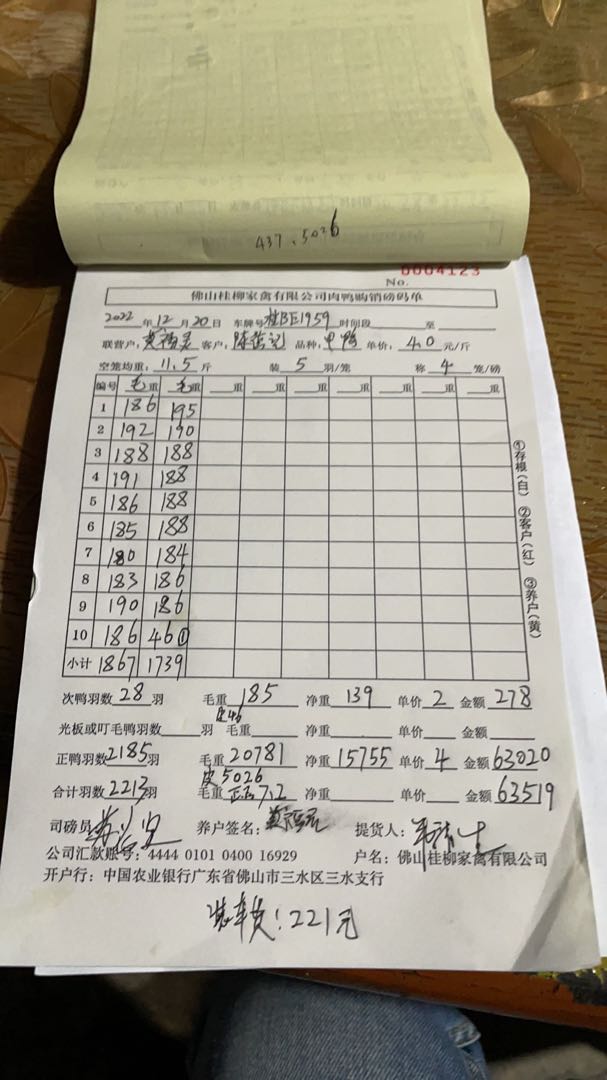 437、5026
0004123
No.
佛山桂柳家禽有限公司肉鸭购销磅码单
2022年12月20日 车牌号桂BE1959 时间段 至
联营户: 客户: 品种: 单价: 4.0元/斤
空笼均重: 11.5斤 装5羽/笼 称4笼/磅
编号 毛重 毛重 重 重 重 重 重 重 重
1 186 195
2 192 190
3 188 188
4 191 188
5 186 188
6 185 188
7 180 184
8 183 186
9 190 186
10 186 46①
小计 1867 1739
①存根(白) ②客户(红) ③养户(黄)
次鸭羽数28羽 毛重185 净重139 单价2 金额278
皮46
光板或叮毛鸭羽数 羽 毛重 净重 单价 金额
正鸭羽数2185羽 毛重20781 净重15755 单价4 金额63020
皮5026
合计羽数2213羽 毛重 7.2 净重 单价 金额63519
司磅员: 养户签名: 提货人:
公司汇款账号: 4444 0101 0400 16929 户名: 佛山桂柳家禽有限公司
开户行: 中国农业银行广东省佛山市三水区三水支行
装车费: 221元